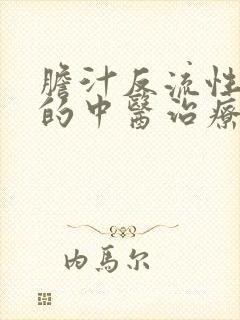 膽汁反流性
的中醫治療
内馬尔